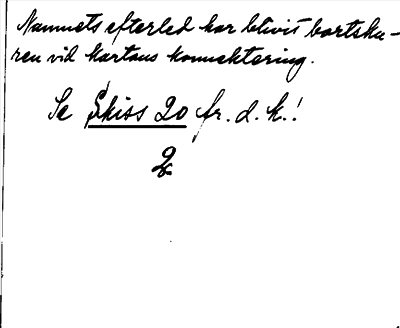 Namnets efterled har blivit bortsku-
ren vid kartans konnektering.
Se Skiss 20 fr. d. k.!